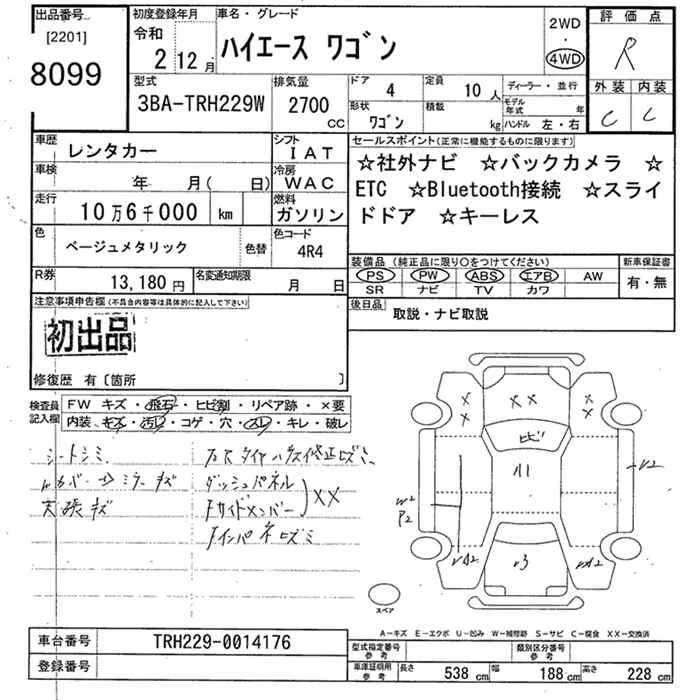 出品番号
[2201]
8099
初度登録年月
令和
2 12月
車名・グレード
ハイエース ワゴン
2WD
・
4WD
評価点
R
外装 内装
C C
型式
3BA-TRH229W
排気量
2700
CC
ドア 4
定員 10 人
ディーラー・並行
形状
ワゴン
積載
kg
モデル
年式 年
ハンドル 左・右
車歴
レンタカー
シフト
IAT
車検
年 月( 日)
冷房
WAC
走行
10万6千000 km
燃料
ガソリン
色
ベージュメタリック
色替
色コード
4R4
R券
13,180円
名変通知期限
月 日
セールスポイント(正常に機能するものに限ります)
☆社外ナビ ☆バックカメラ ☆
ETC ☆Bluetooth接続 ☆スライ
ドドア ☆キーレス
装備品(純正品に限り○をつけてください)
PS PW ABS エアB AW
SR ナビ TV カワ
新車保証書
有・無
後日品
取説・ナビ取説
注意事項申告欄(不具合内容等は具体的に記入して下さい)
初出品
修復歴 有〔箇所 〕
検査員
記入欄
FW キズ・飛石・ヒビ割・リペア跡・×要
内装、キズ・汚レ・コゲ・穴・スレ・キレ・破レ
シートシミ
天張キズ
ダッシュパネル
サイドメンバー
XX
インパネヒズミ
X X
X X
X X
ヒビ
V2
W2
P2
V3
スペア
A−キズ E−エクボ U−凹み W−補修跡 S−サビ C−腐食 XX−交換済
車台番号
TRH229-0014176
登録番号
型式指定番号
参考
類別区分番号
参考
車庫証明用
参考
長さ 538 cm
幅 188 cm
高さ 228 cm